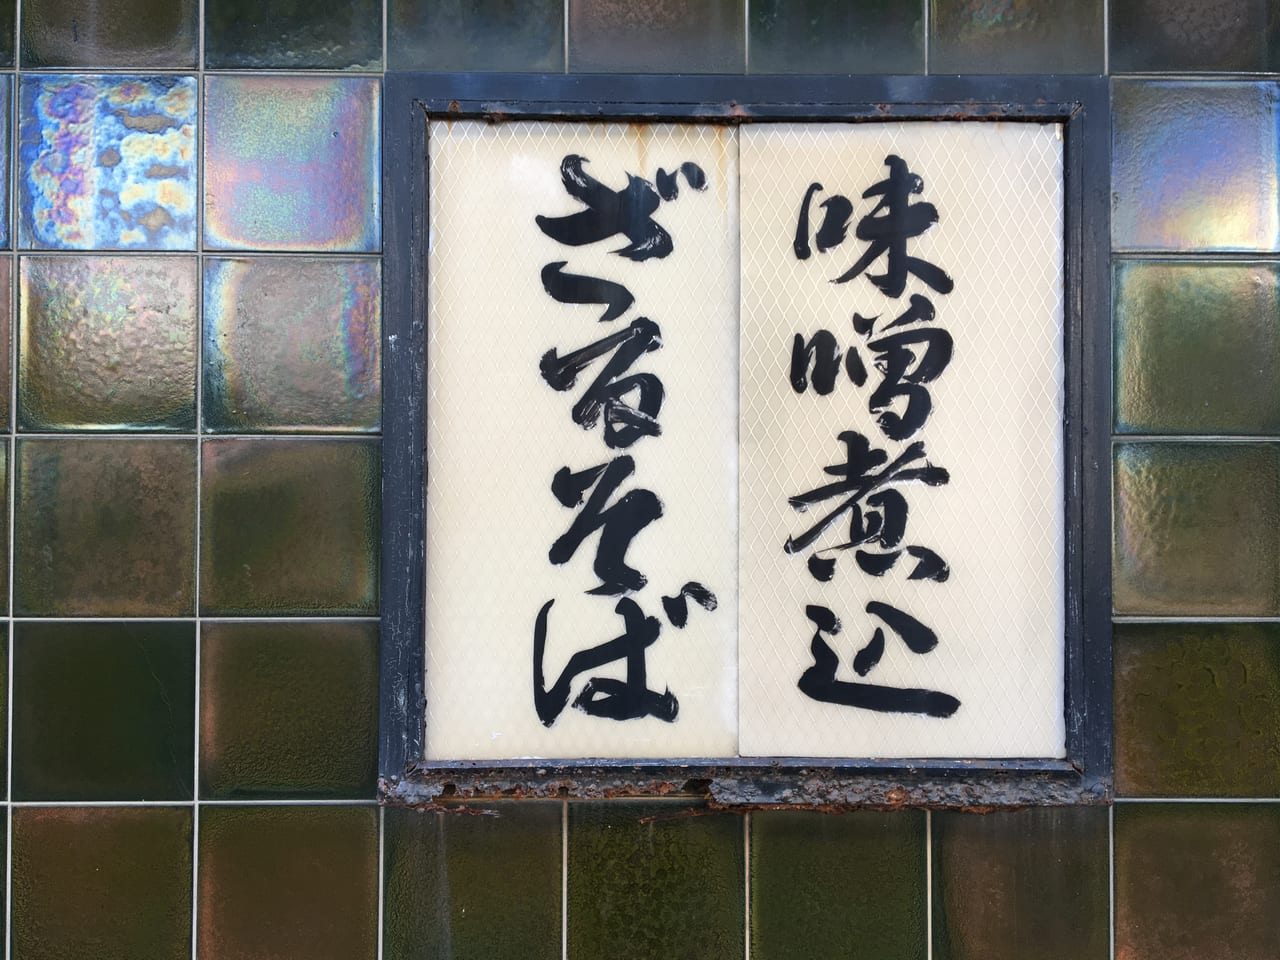 味噌煮込
ざるそば